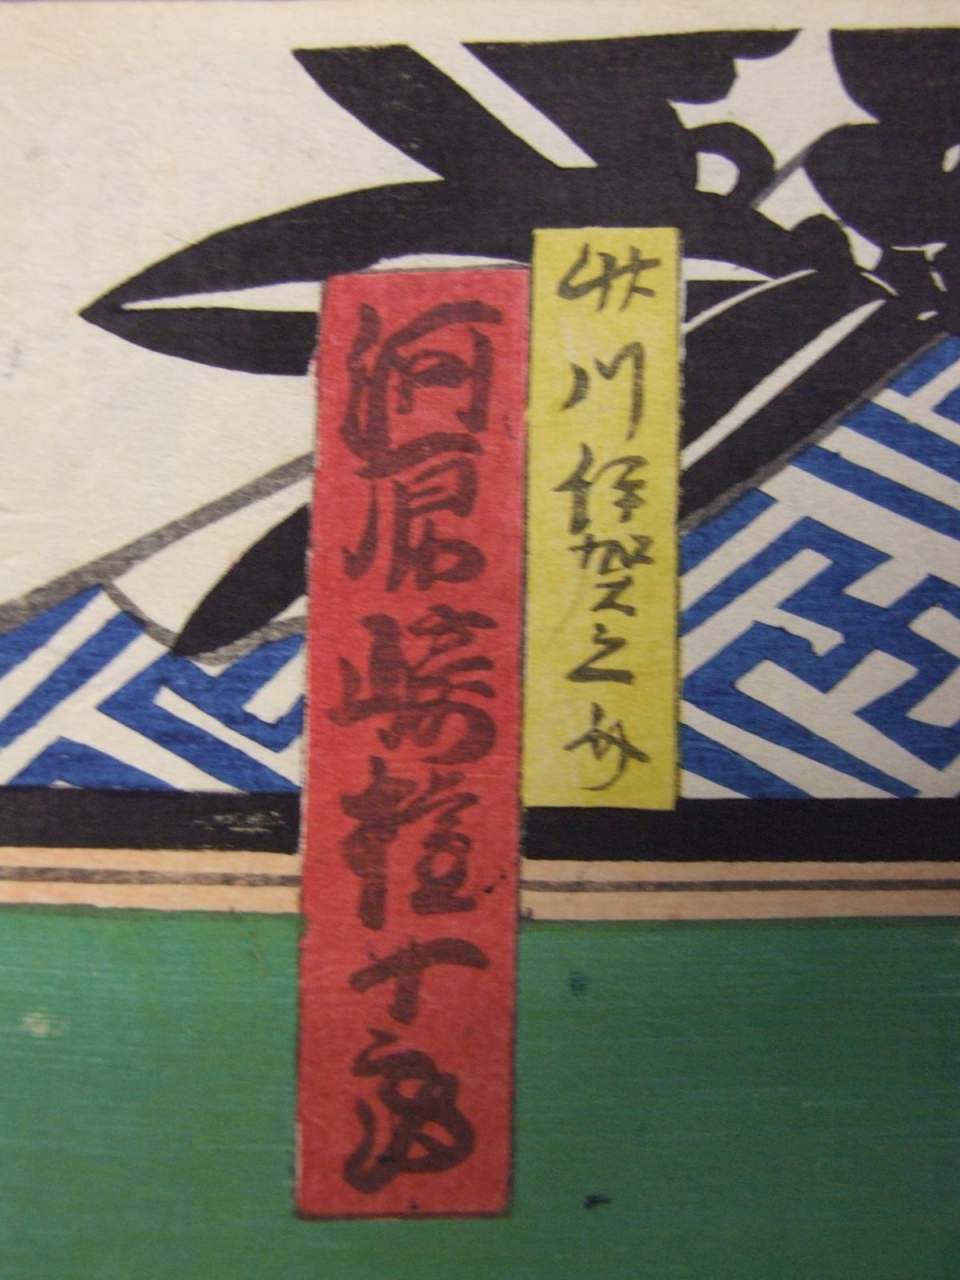 川伊賀之
河原崎権十郎